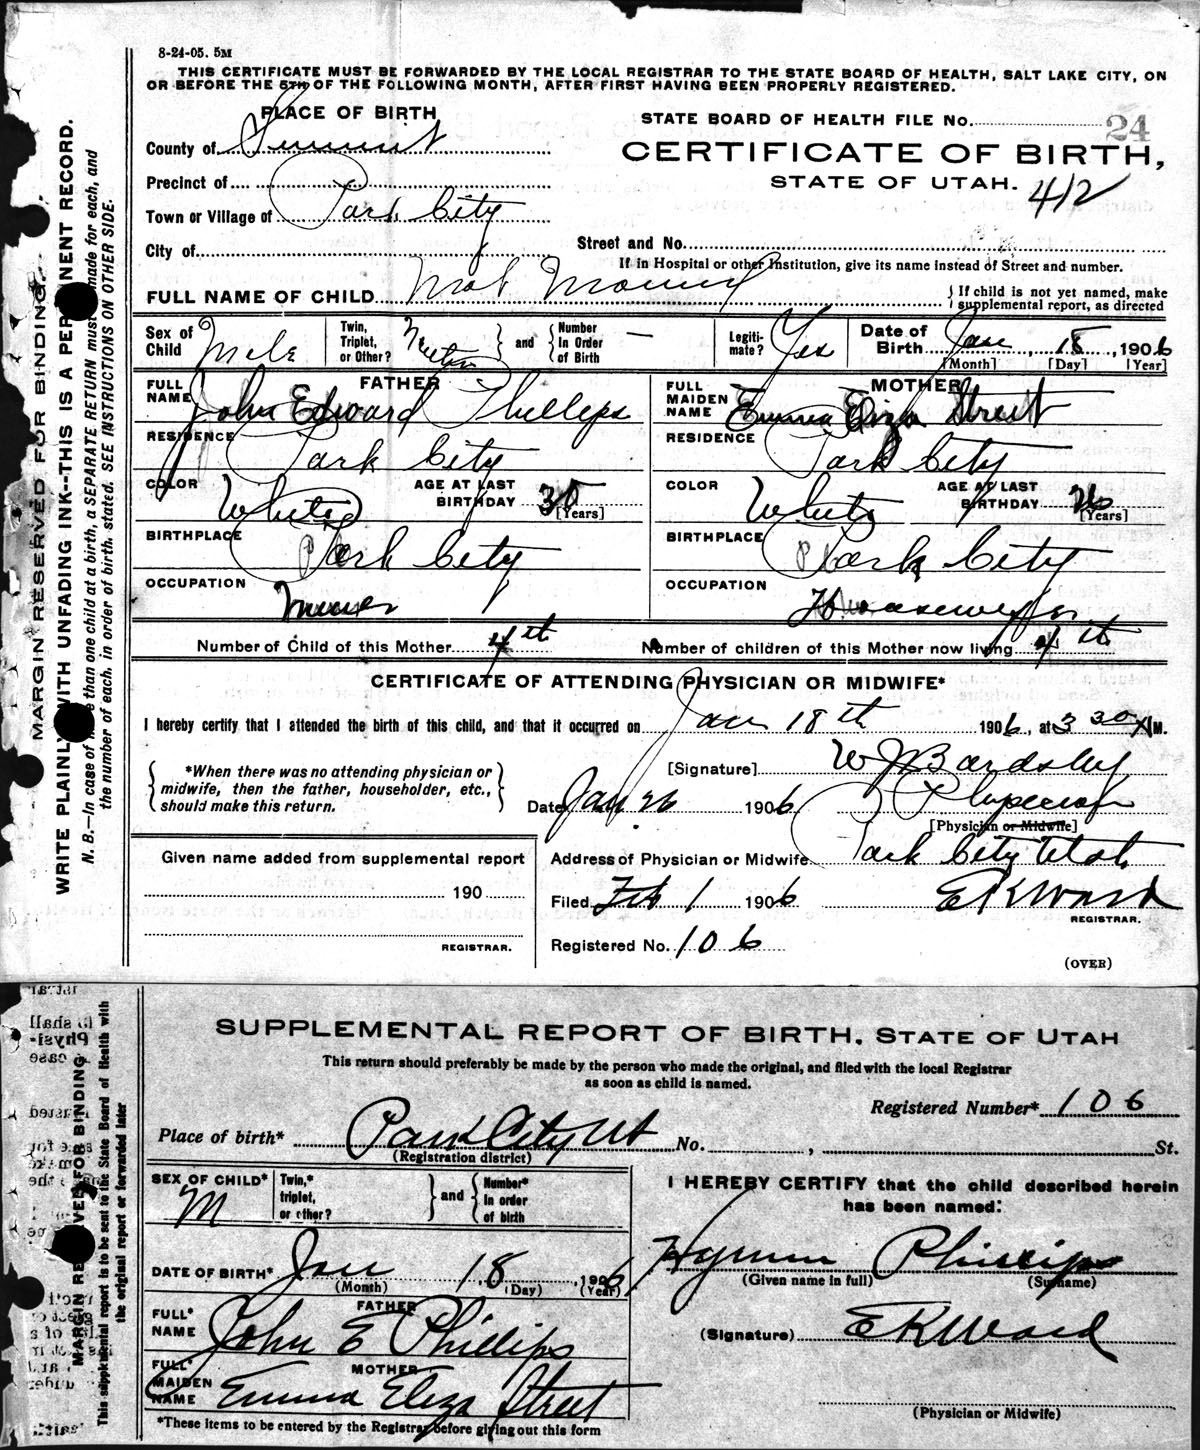 8-24-05. 5M
THIS CERTIFICATE MUST BE FORWARDED BY THE LOCAL REGISTRAR TO THE STATE BOARD OF HEALTH, SALT LAKE CITY, ON
OR BEFORE THE 5TH OF THE FOLLOWING MONTH, AFTER FIRST HAVING BEEN PROPERLY REGISTERED.
PLACE OF BIRTH
County of Summit
Precinct of
Town or Village of Park City
City of
STATE BOARD OF HEALTH FILE No. 24
CERTIFICATE OF BIRTH,
STATE OF UTAH. 412
Street and No.
If in Hospital or other Institution, give its name instead of Street and number.
FULL NAME OF CHILD Not Named
{ If child is not yet named, make
supplemental report, as directed
Sex of Child Male
Twin, Triplet, or Other? } and { Number in Order of Birth —
Legitimate? Yes
Date of Birth Jan, 18, 1906
[Month] [Day] [Year]
FATHER
FULL NAME John Edward Phillips
RESIDENCE Park City
COLOR White AGE AT LAST BIRTHDAY 35 [Years]
BIRTHPLACE Park City
OCCUPATION Miner
MOTHER
FULL MAIDEN NAME Emma Eliza Street
RESIDENCE Park City
COLOR White AGE AT LAST BIRTHDAY 26 [Years]
BIRTHPLACE Park City
OCCUPATION Housewife
Number of Child of this Mother 4th Number of children of this Mother now living 4th
CERTIFICATE OF ATTENDING PHYSICIAN OR MIDWIFE*
I hereby certify that I attended the birth of this child, and that it occurred on Jan 18th 1906, at 3 30 M.
{ *When there was no attending physician or
midwife, then the father, householder, etc.,
should make this return. }
[Signature] W J Bardsley
Date Jan 26 1906 Physician
[Physician or Midwife]
Address of Physician or Midwife Park City Utah
Filed Feb 1 1906 E K Ward
REGISTRAR.
Registered No. 106
(OVER)
Given name added from supplemental report
190
REGISTRAR.
MARGIN RESERVED FOR BINDING.
WRITE PLAINLY WITH UNFADING INK--THIS IS A PERMANENT RECORD.
N. B.—In case of more than one child at birth, a SEPARATE RETURN must be made for each, and
the number of each, in order of birth, stated. SEE INSTRUCTIONS ON OTHER SIDE.
SUPPLEMENTAL REPORT OF BIRTH, STATE OF UTAH
This return should preferably be made by the person who made the original, and filed with the local Registrar
as soon as child is named.
Registered Number* 106
Place of birth* Park City Ut No. , St.
(Registration district)
SEX OF CHILD* M
Twin,* triplet, or other? } and { Number* in order of birth
DATE OF BIRTH* Jan 18, 1906
(Month) (Day) (Year)
FATHER
FULL* NAME John E Phillips
MOTHER
FULL* MAIDEN NAME Emma Eliza Street
*These items to be entered by the Registrar before giving out this form
I HEREBY CERTIFY that the child described herein
has been named:
Hyrum Phillips
(Given name in full) (Surname)
(Signature) E K Ward
(Physician or Midwife)
MARGIN RESERVED FOR BINDING
This supplemental report is to be sent to the State Board of Health with
the original report or forwarded later